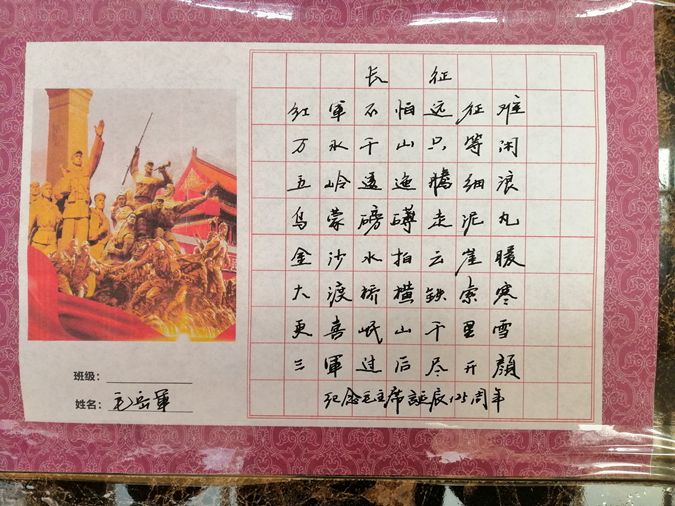 长征
红軍不怕远征难
万水千山只等闲
五岭逶迤腾细浪
乌蒙磅礴走泥丸
金沙水拍云崖暖
大渡桥横铁索寒
更喜岷山千里雪
三軍过后尽开顔
纪念毛主席誕辰125周年
班级：
姓名：毛岳軍